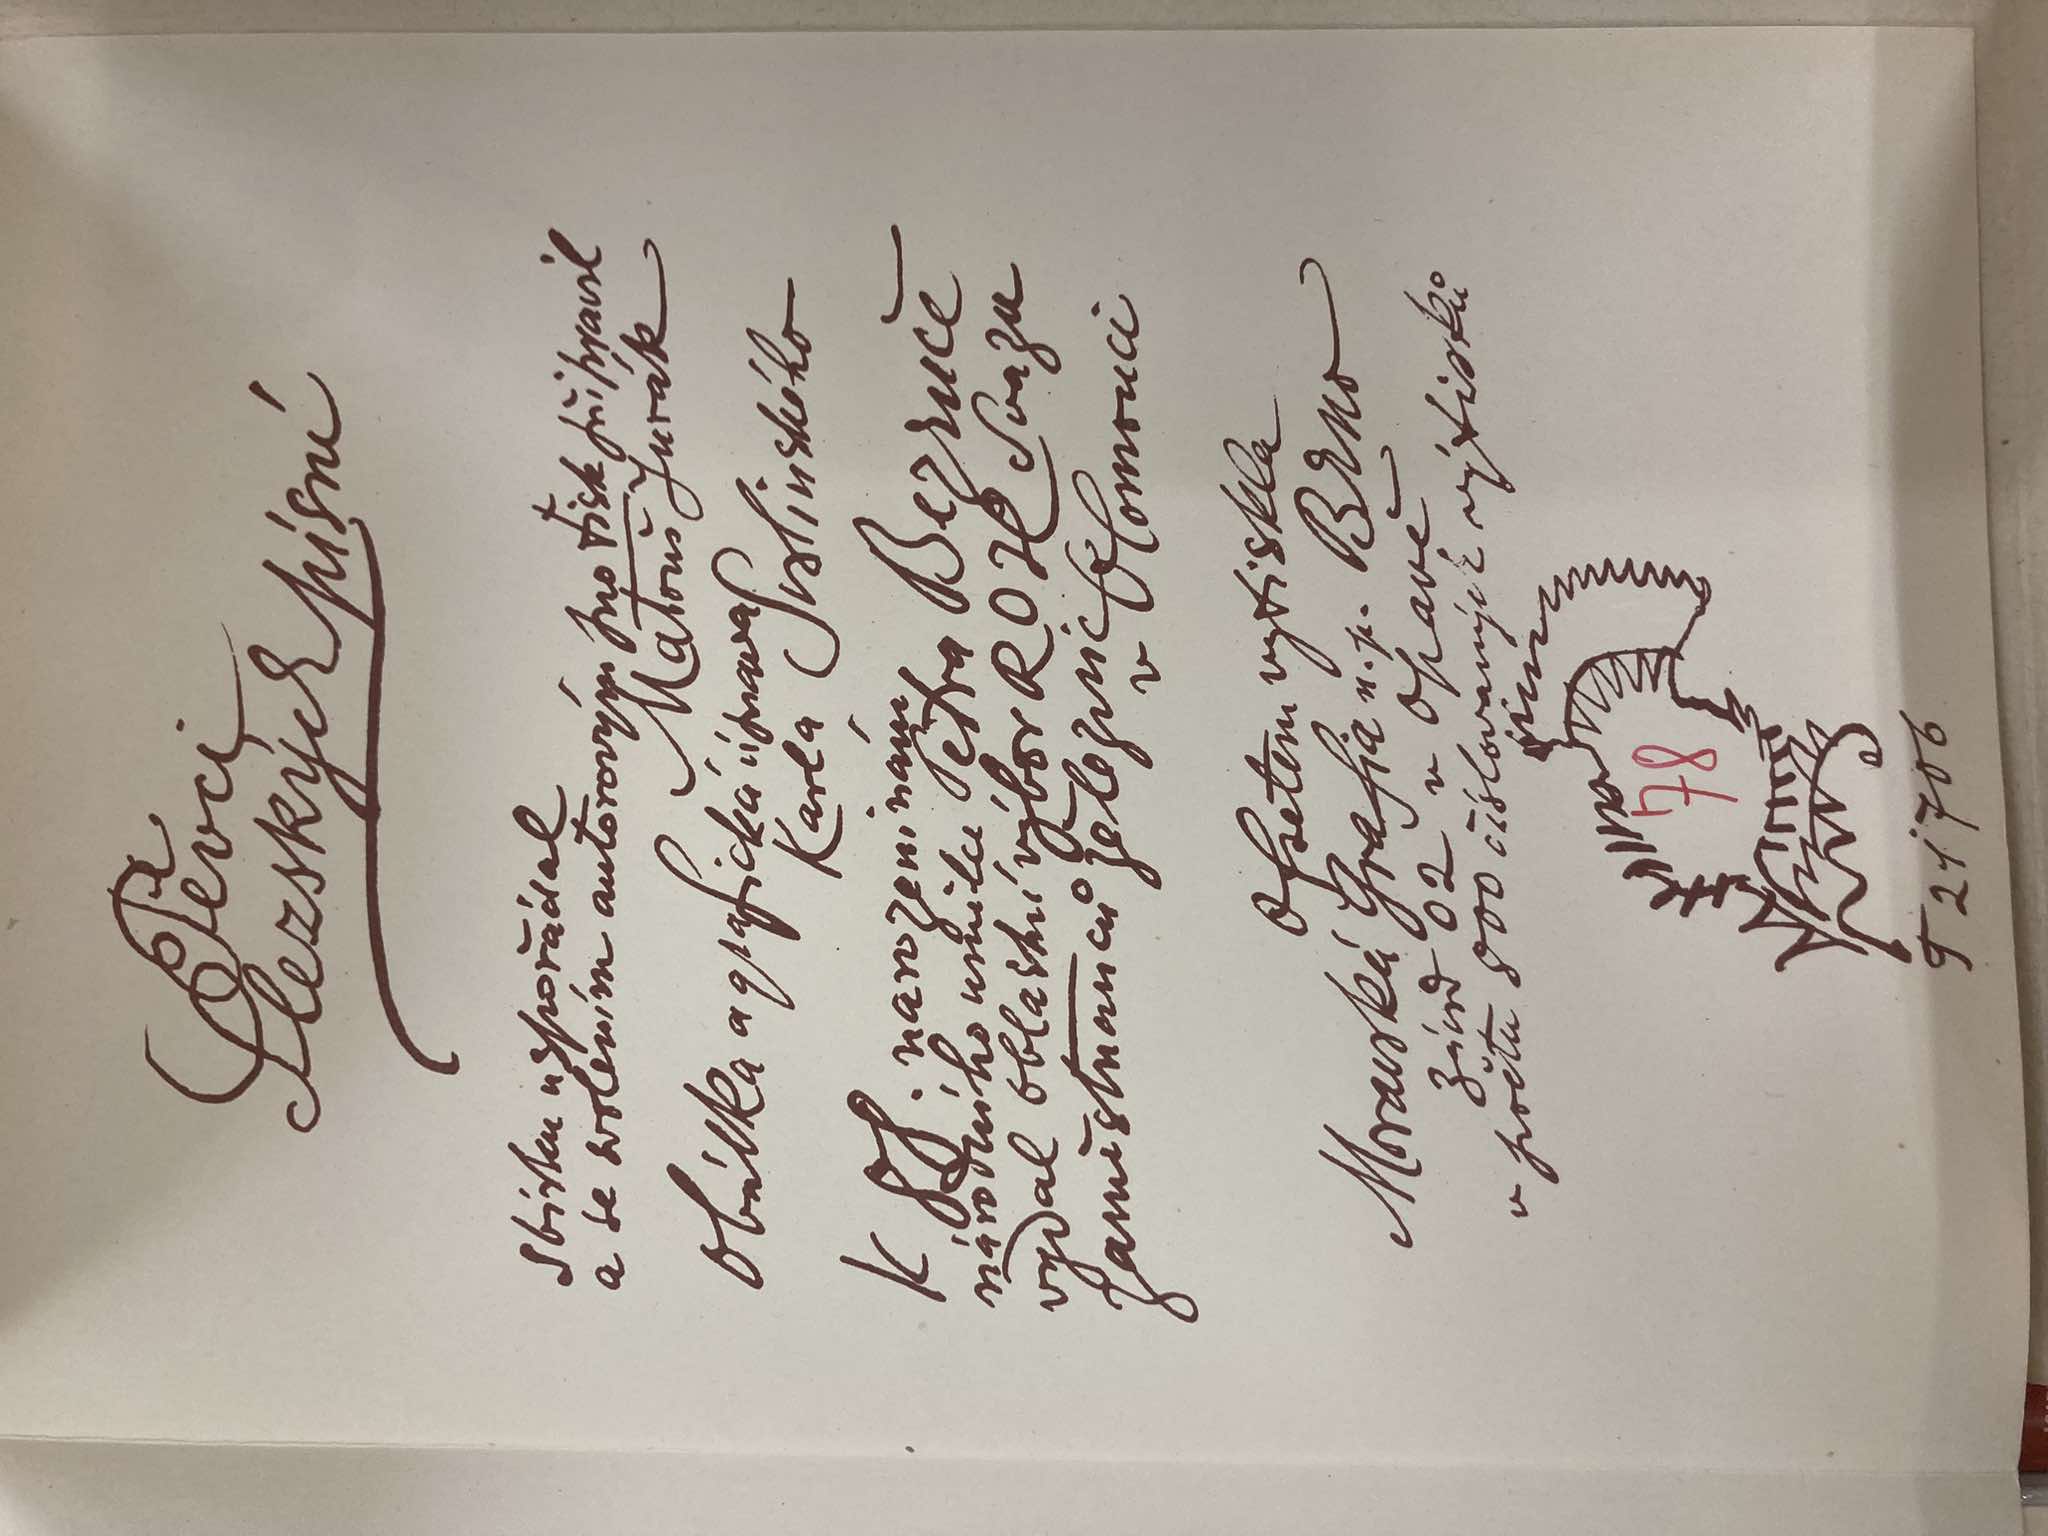 Pěvci
Slezských písní
Sbírku uspořádal
a se svolením autorovým pro tisk připravil
Matouš Jurák
Obálka a grafická úprava
Karla Svolinského
K 80. narozeninám
národního umělce Petra Bezruče
vydal oblastní výbor ROH Svazu
zaměstnanců železnic
v Olomouci
Ofsetem vytiskla
Moravská Grafia n.p. Brno
závod 02 v Opavě
v počtu 800 číslovaných výtisků
78
T 21706